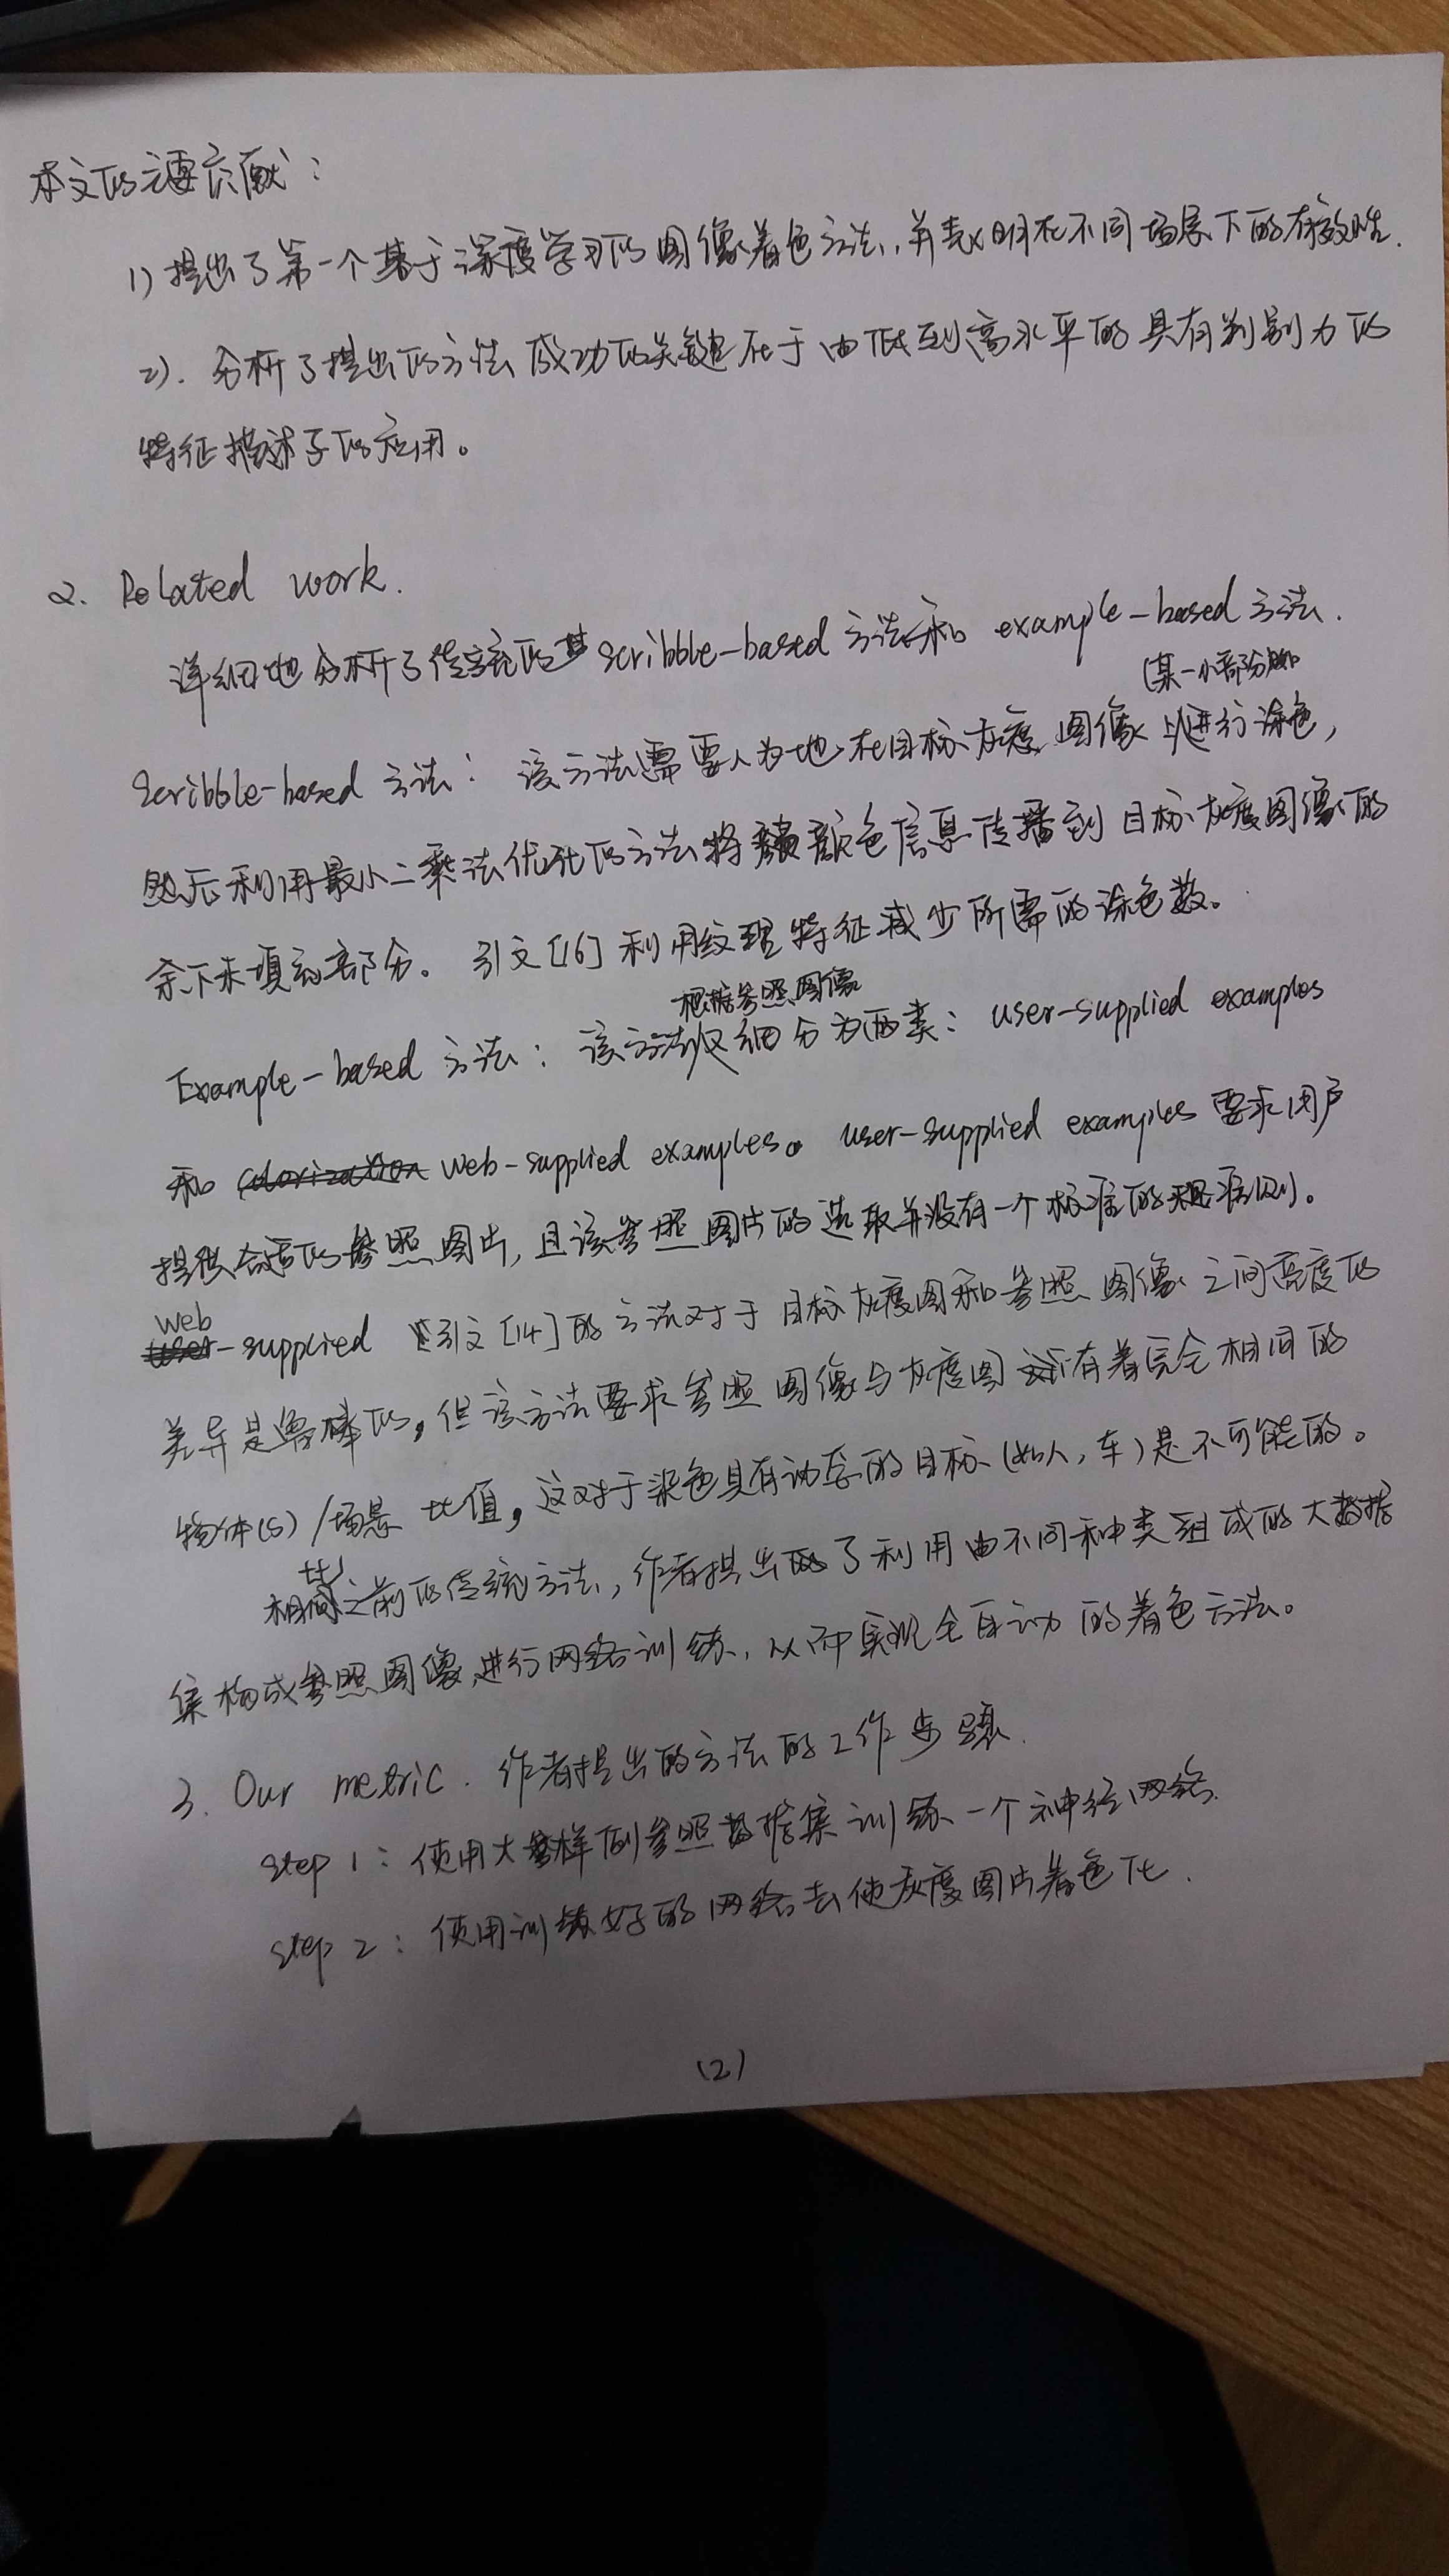 本文的主要贡献：
1) 提出了第一个基于深度学习的图像着色方法，并表明在不同场景下的有效性.
2). 分析了提出的方法成功的关键在于由低到高水平的具有判别力的
特征描述子的应用。
2. Related work.
详细地分析了传统的 scribble-based 方法和 example-based 方法.
(某一小部分
scribble-based 方法： 该方法需要人为地在目标灰度图像上进行涂色，
然后利用最小二乘法优化的方法将颜色信息传播到目标灰度图像的
余下未填部分。 引文[16]利用纹理特征减少所需的涂色数。
根据参照图像
Example-based 方法： 该方法又细分为两类： user-supplied examples
和 web-supplied examples。 user-supplied examples 要求用户
提供合适的参照图片，且该参照图片的选取并没有一个标准的准则。
web
-supplied 引文[14]的方法对于目标灰度图和参照图像之间亮度的
差异是鲁棒的，但该方法要求参照图像与灰度图有着完全相同的
物体(s) /场景 比值，这对于染色具有动态的目标(如人，车)是不可能的。
相比之前的传统方法，作者提出了利用由不同种类组成的大数据
集构成参照图像，进行网络训练，从而实现全自动的着色方法。
3. Our metric. 作者提出的方法的工作步骤.
step 1： 使用大量样例参照数据集训练一个神经网络.
step 2： 使用训练好的网络去使灰度图片着色化.
(2)